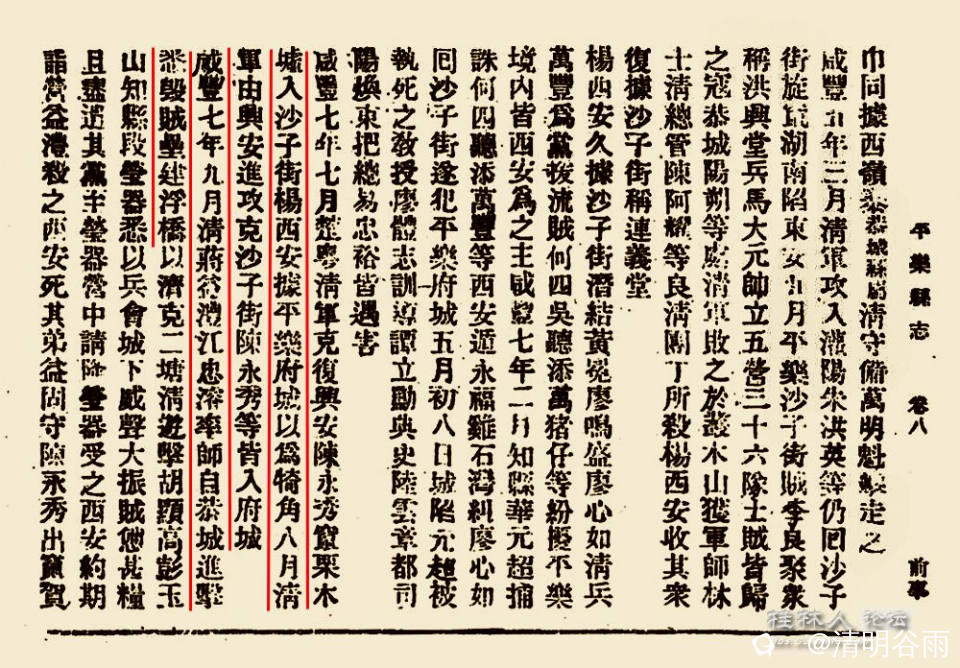 平樂縣志 卷八 前事
巾同據西嶺恭城縣屬清守備萬明魁走之
咸豐五年三月清軍攻入灌陽朱洪英等仍回沙子
街旋竄湖南陷東安九月平樂沙子街賊李良聚衆
稱洪興堂兵馬大元帥立五營三十六隊土賊皆歸
之寇恭城陽朔等處清軍敗之於叢木山獲軍師林
士清總管陳阿耀等良清團丁所殺楊西安收其衆
復據沙子街稱連義堂
楊西安久據沙子街潛結黃冕廖鳴盛廖心如清兵
萬豐爲黨後流賊何四吳聽添萬猪仔等紛擾平樂
境內皆西安爲之主咸豐七年二月知縣華元超捕
誅何四聽添萬豐等西安遁永福雞石灣糾廖心如
回沙子街遂犯平樂府城五月初八日城陷元超被
執死之教授廖體志訓導譚立勳典史陸雲章都司
陽煥東把總易忠裕皆遇害
咸豐七年七月楚粵清軍克復興安陳永秀竄栗木
墟入沙子街楊西安據平樂府城以爲犄角八月清
軍由興安進攻克沙子街陳永秀等皆入府城
咸豐七年九月清蔣益澧江忠濬率師自恭城進擊
悉毀賊壘建浮橋以濟克二塘清遊擊胡顯高彭玉
山知縣段瑩器悉以兵會城下威聲大振賊憊甚糧
且盡適其黨主瑩器營中請降瑩器受之西安約期
詣營益澧殺之西安死其弟益固守陳永秀出竄賀
桂林人 论坛
@清明谷雨